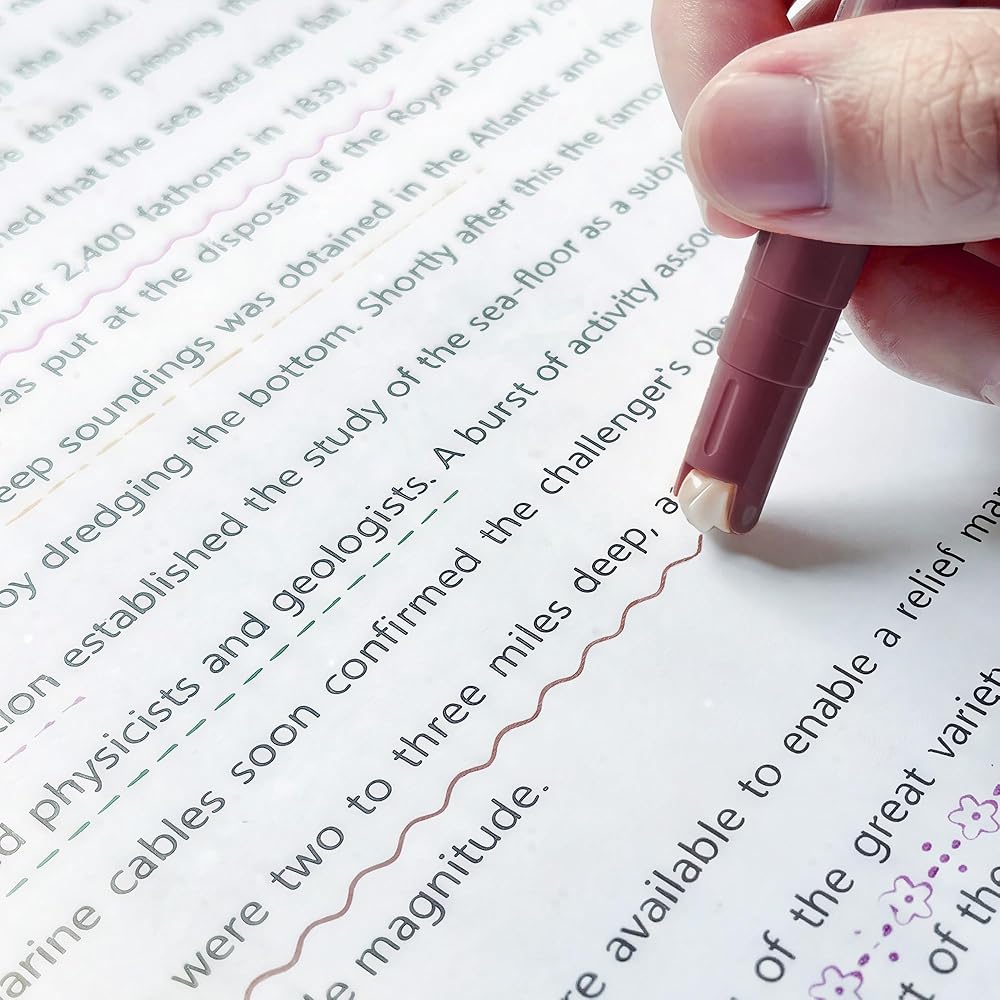 than a
that the sea sed was
over 2,400 fathoms in 1839, but it
as put at the disposal at the Royal Society
eep soundings was obtained in the Atlantic and the
oy dredging the bottom. Shortly after this the famou
tion established the study of the sea-floor as a subje
d physicists and geologists. A burst of activity asso
arine cables soon confirmed the challenger's obs
were two to three miles deep, a
le magnitude.
re available to enable a relief ma
of the great variet
t of the